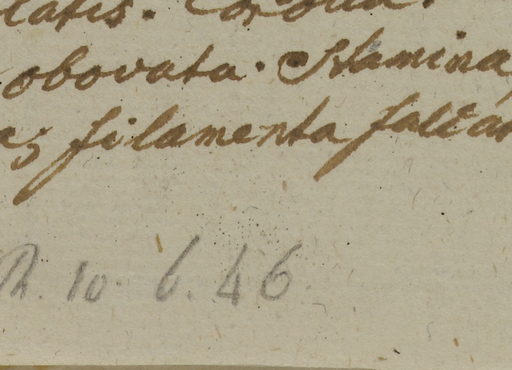 latis. Corolla.
obovata. Stamina,
filamenta falcat
R. 10. 6. 46